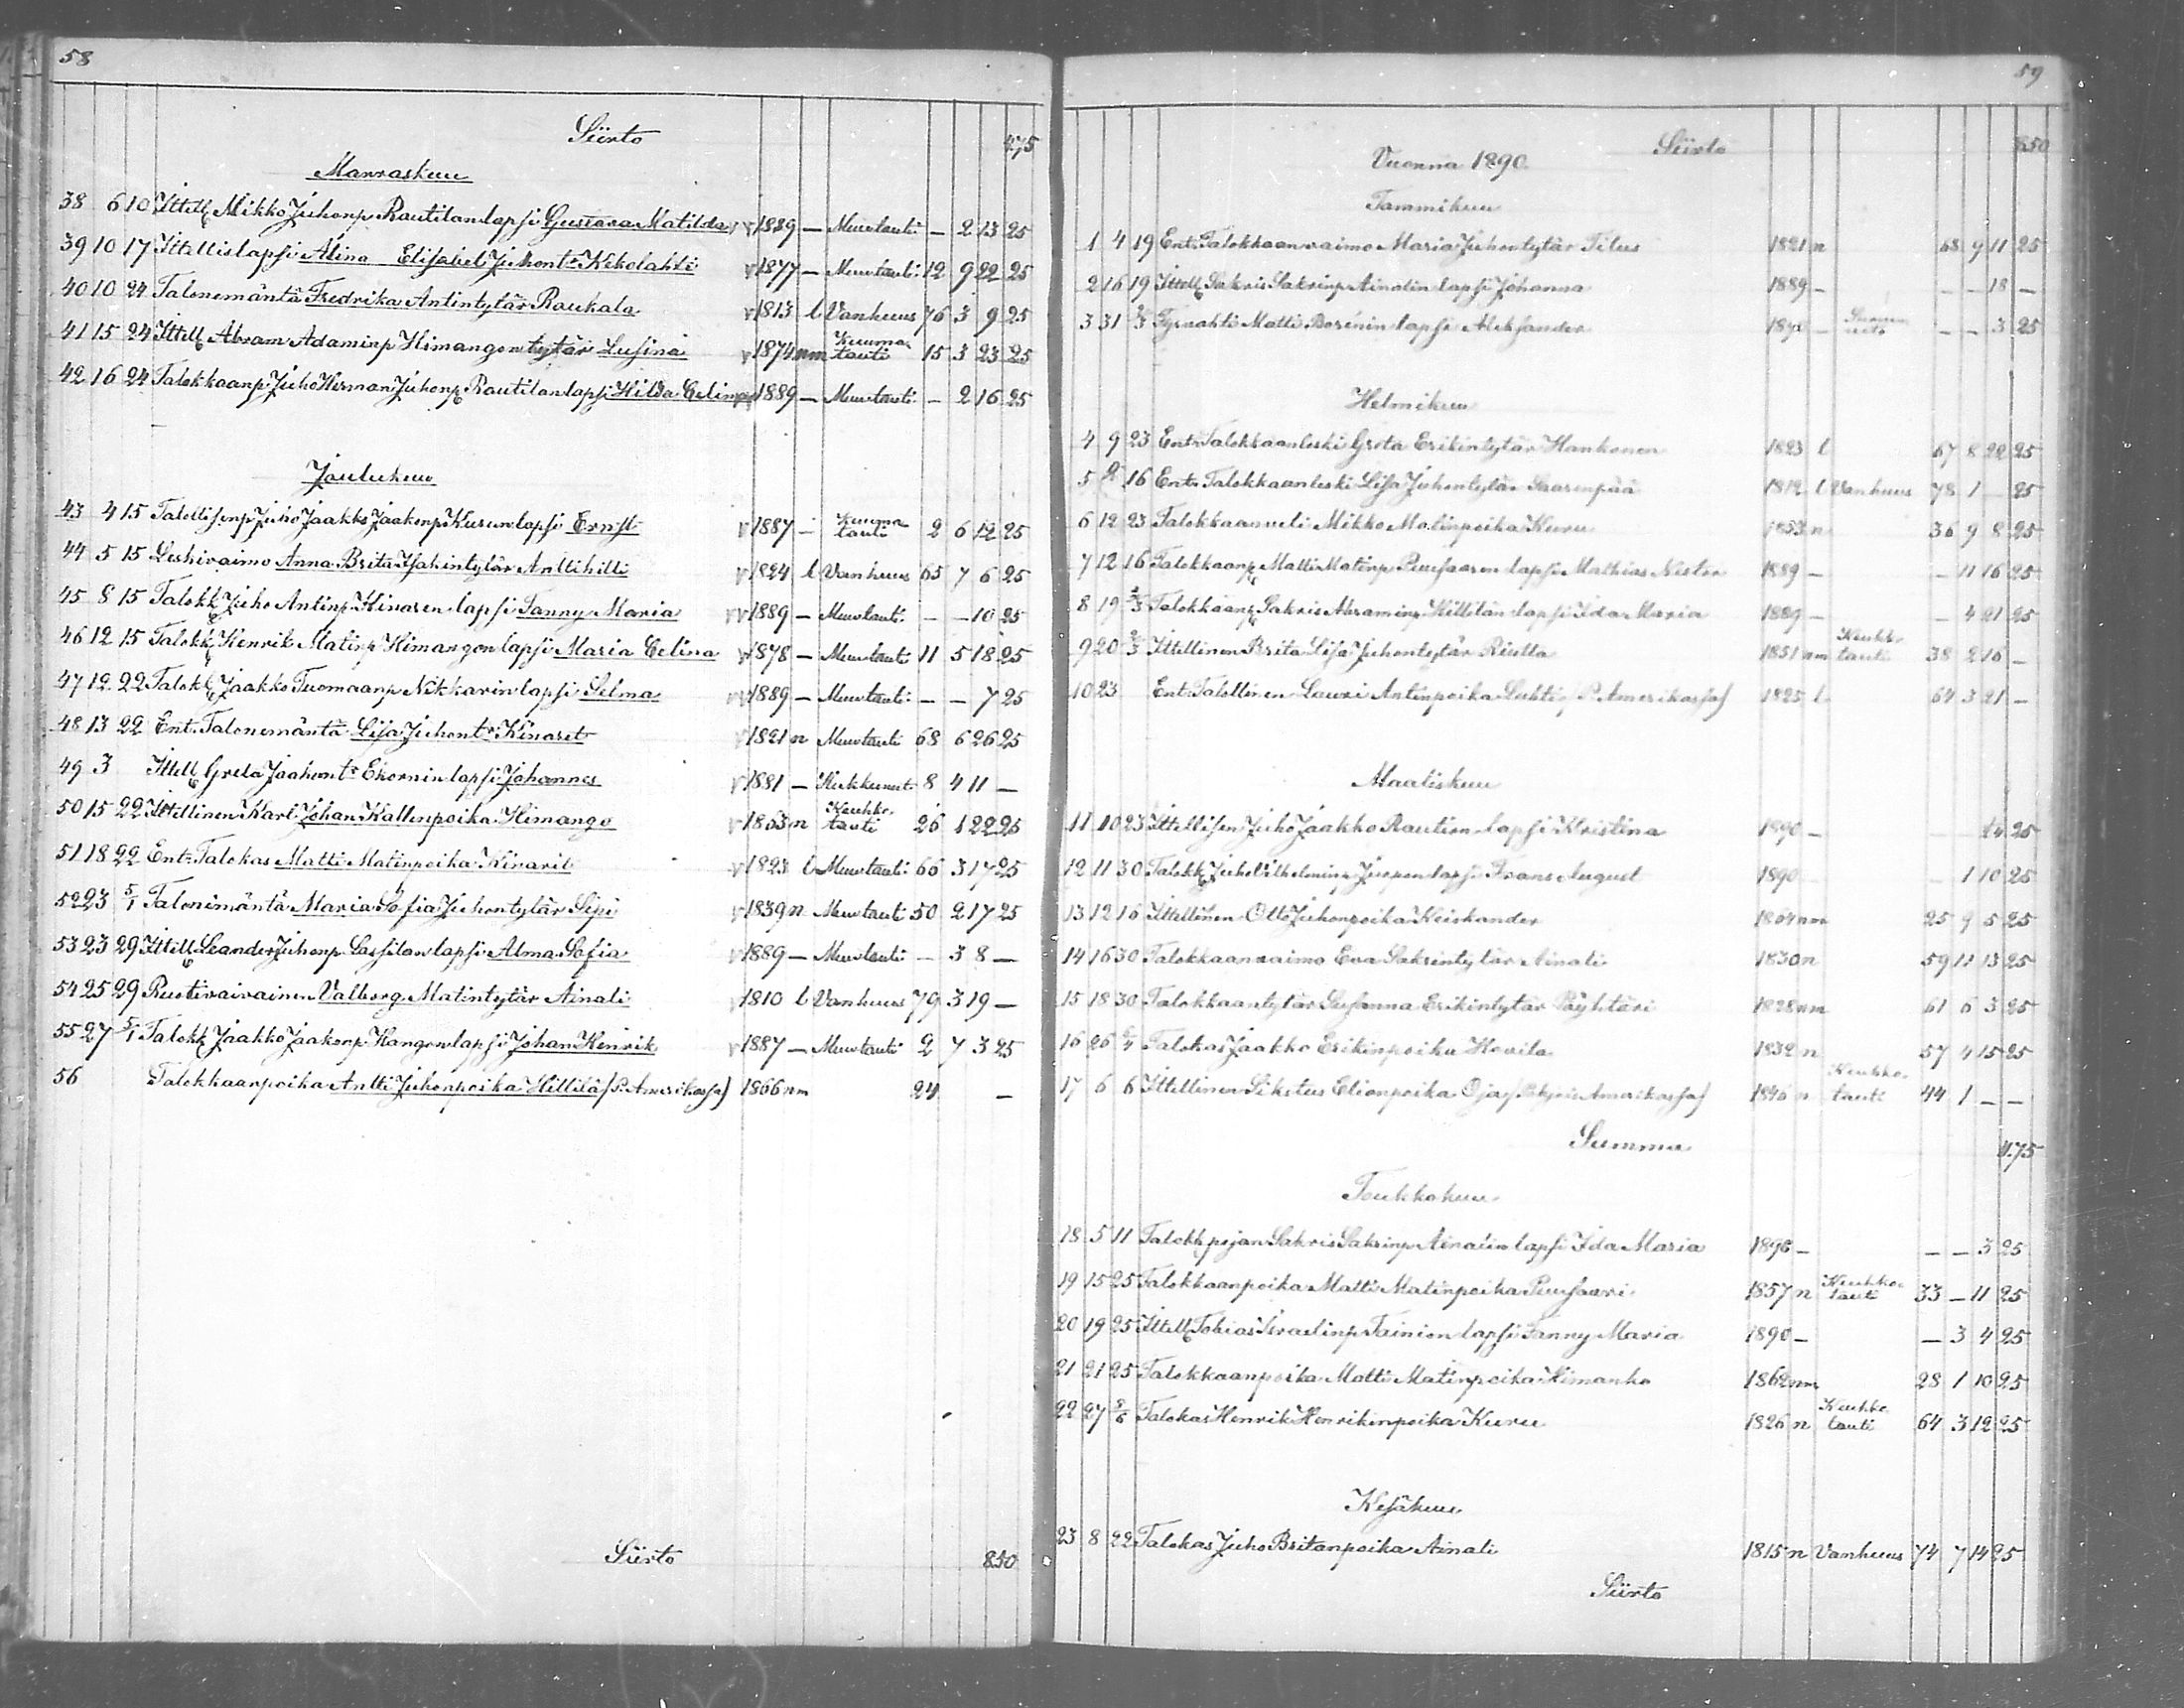 58
Siirto 475
Marraskuu
38 6 10 Ittell Mikko Juhonp Rautilan lapsi Gustava Matilda 1889 — Muu tauti — 2 13 25
39 10 17 Ittellislapsi Alina Elisabet Juhont:r Kekolahti 1877 — Muu tauti 12 9 22 25
40 10 24 Talonemäntä Fredrika Antintytär Raukala 1813 l Vanhuus 76 3 9 25
41 15 24 Ittell Abram Adaminp Himangon tytär Lusina 1874 nm Kuumatauti 15 3 23 25
42 16 24 Talokkaanp Juho Herman Juhonp Rautilan lapsi Hilda Eelina 1889 — Muu tauti — 2 16 25
Joulukuu
43 4 15 Talollisenp Juho Jaakko Jaakonp Kurun lapsi Ernst 1887 — Kuumatauti 2 6 12 25
44 5 15 Leskivaimo Anna Brita Isakintytär Anttihilli 1824 l Vanhuus 65 7 6 25
45 8 15 Talokk Juho Antinp Kinaren lapsi Fanny Maria 1889 — Muu tauti — — 10 25
46 12 15 Talokk Henrik Matinp Himangon lapsi Maria Eelina 1878 — Muu tauti 11 5 18 25
47 12 22 Talokk Jaakko Tuomaanp Nikkarin lapsi Selma 1889 — Muu tauti — — 7 25
48 13 22 Ent. Talonemäntä Lisa Juhont:r Kinaret 1821 n Muu tauti 68 6 26 25
49 3 Ittell Greta Jaakont:r Ekornin lapsi Johannes 1881 — Hukkunut 8 4 11 —
50 15 22 Ittellinen Karl Johan Kallenpoika Himango 1863 n Keuhkotauti 26 1 22 25
51 18 22 Ent: Talokas Matti Matinpoika Kinarit 1823 l Muu tauti 66 3 17 25
52 23 5/1 Talonemäntä Maria Sofia Juhontytär Sipi 1839 n Muu tauti 50 2 17 25
53 23 29 Ittell Leander Juhonp Sassilan lapsi Alma Sofia 1889 — Muu tauti — 3 8 —
54 25 29 Ruotivaivainen Valborg Matintytär Ainali 1810 l Vanhuus 79 3 19 —
55 27 5/1 Talokk Jaakko Jaakonp Kangon lapsi Johan Henrik 1887 — Muu tauti 2 7 3 25
56 Talokkaanpoika Antti Juhonpoika Hillilä (P. Amerikassa) 1866 nm 24 —
Siirto 850
59
Siirto 850
Vuonna 1890.
Tammikuu
1 4 19 Ent. Talokkaanvaimo Maria Juhontytär Tilus 1821 n 68 9 11 25
2 16 19 Ittell Sakris Sakrinp Ainalin lapsi Johanna 1889 — — — 18 —
3 31 2/3 Matti lapsi Aleksander 1890 — — — 3 25
Helmikuu
4 9 23 Ent: Talokkaanleski Greta Erikintytär Hankonen 1823 l 67 8 22 25
5 16 Ent. Talokkaanleski Lisa Juhontytär Saarenpää 1812 l Vanhuus 78 1 25
6 12 23 Talokkaanveli Mikko Matinpoika Kuru 1853 n 36 9 8 25
7 12 16 Talokkaanp Matti Matinp Puusaaren lapsi Mathias Nestor 1889 — — 11 16 25
8 19 2/3 Talokkaanp Sakris Abraminp Hillilän lapsi Ida Maria 1889 — — 4 21 25
9 20 2/3 Ittellinen Brita Lisa Juhontytär Riutta 1851 nm Keuhkotauti 38 2 16 —
10 23 Ent. Talollinen Lauri Antinpoika Luhti (P. Amerikassa) 1825 l 64 3 21 —
Maaliskuu
11 10 23 Ittellisen Juho Jaakko Raution lapsi Kristina 1890 — 14 25
12 11 30 Talokk Juho Vilhelminp Juopon lapsi Frans August 1890 — 1 10 25
13 12 16 Ittellinen Otto Juhonpoika Keiskander 1864 nm 25 9 5 25
14 16 30 Talokkaanvaimo Eva Sakrintytär Ainali 1830 n 59 11 13 25
15 18 30 Talokkaantytär Susanna Erikintytär Pöyhtäri 1828 nm 61 6 3 25
16 26 6/4 Talokas Jaakko Erikinpoika Hovila 1832 n 57 4 15 25
17 6 6 Ittellinen Sikstus Elionpoika Oja (Pohjois Amerikassa) 1846 n Keuhkotauti 44 1 — —
Summa 4.75
Toukokuu
18 5 11 Talokk pojan Sakris Sakrinp Ainalin lapsi Ida Maria 1890 — — — 3 25
19 15 25 Talokkaanpoika Matti Matinpoika Puusaari 1857 n Keuhkotauti 33 — 11 25
20 19 25 Ittell Tobias Israelinp Tainion lapsi Fanny Maria 1890 — — 3 4 25
21 21 25 Talokkaanpoika Matti Matinpoika Himanko 1862 nm 28 1 10 25
22 27 8/6 Talokas Henrik Henrikinpoika Kuru 1826 n Keuhkotauti 64 3 12 25
Kesäkuu
23 8 22 Talokas Juho Britanpoika Ainali 1815 n Vanhuus 74 7 14 25
Siirto